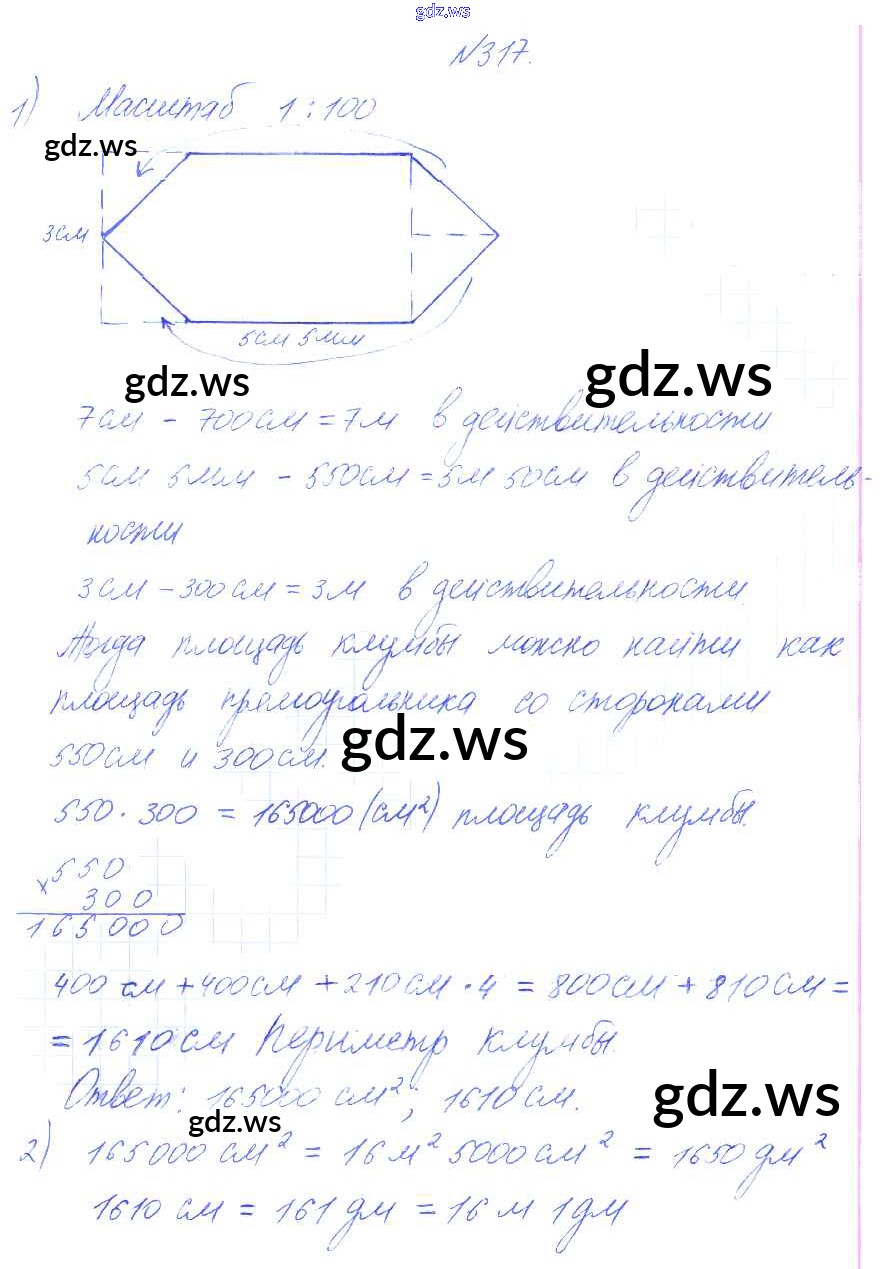 gdz.ws
№317.
1) Масштаб 1:100
gdz.ws
3см
5см 5мм
gdz.ws
gdz.ws
7см - 700см = 7м в действительности
5см 5мм - 550см = 5м 50см в действитель-
ности
3см - 300см = 3м в действительности
Тогда площадь клумбы можно найти как
площадь прямоугольника со сторонами
550см и 300см.
gdz.ws
550 · 300 = 165000 (см²) площадь клумбы.
× 550
300
165000
400 см + 400см + 210см · 4 = 800см + 810см =
= 1610см Периметр клумбы.
Ответ: 165000 см²; 1610см.
gdz.ws
gdz.ws
2) 165000 см² = 16м² 5000см² = 1650дм²
1610 см = 161 дм = 16 м 1дм